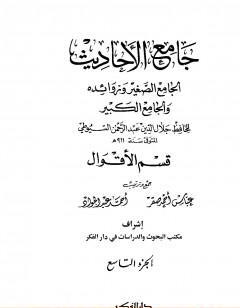 جامع الأحاديث
الجامع الصغير وزوائده
والجامع الكبير
للحافظ جلال الدين عبد الرحمن السيوطي
المتوفى سنة ٩١١ هـ
قسم الأقوال
جمع وترتيب
عباس أحمد صقر أحمد عبد الجواد
إشراف
مكتب البحوث والدراسات في دار الفكر
الجزء التاسع
دار الفكر